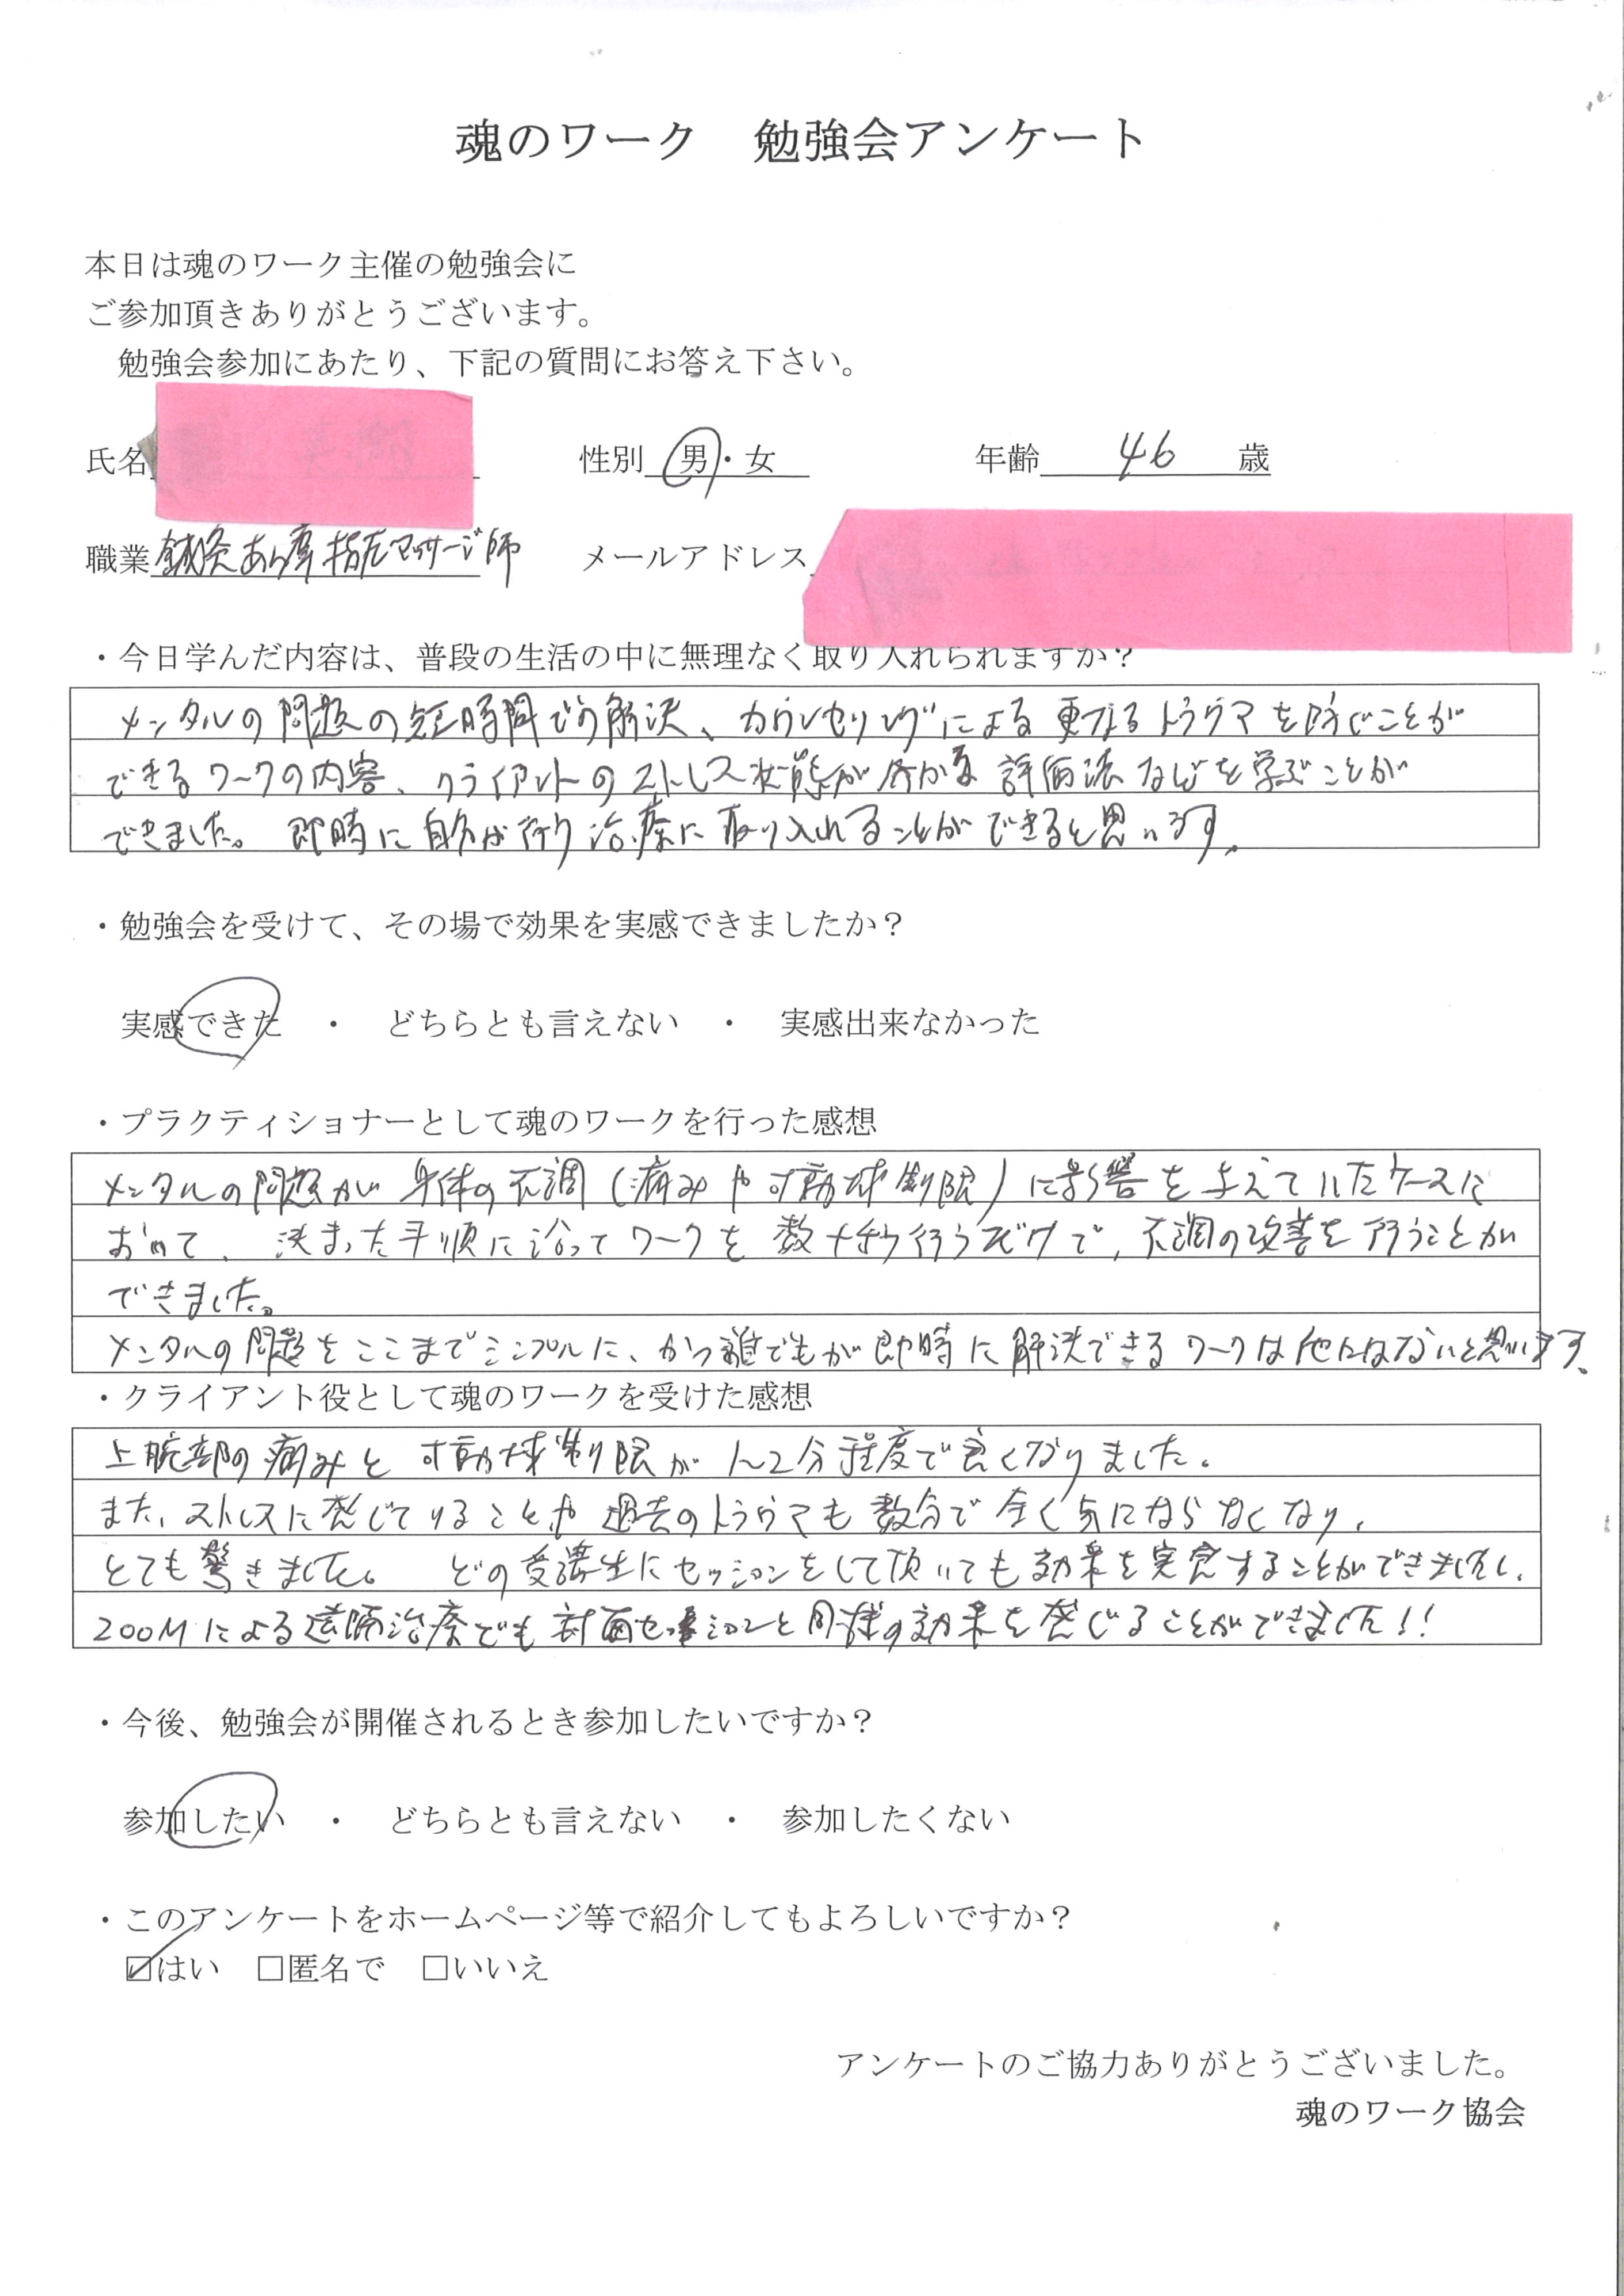 魂のワーク　勉強会アンケート
本日は魂のワーク主催の勉強会に
ご参加頂きありがとうございます。
勉強会参加にあたり、下記の質問にお答え下さい。
氏名　性別 男・女　年齢 46 歳
職業 鍼灸あん摩指圧マッサージ師　メールアドレス
・今日学んだ内容は、普段の生活の中に無理なく取り入れられますか？
メンタルの問題の短時間での解決、カウンセリングによる更なるトラウマを防ぐことが
できるワークの内容、クライアントのストレス状態が分かる評価法などを学ぶことが
できました。即時に自分が行う治療に取り入れることができると思います。
・勉強会を受けて、その場で効果を実感できましたか？
実感できた　・　どちらとも言えない　・　実感出来なかった
・プラクティショナーとして魂のワークを行った感想
メンタルの問題が身体の不調（痛みや可動域制限）に影響を与えていたケースに
おいて、決まった手順に沿ってワークを数十秒行うだけで、不調の改善を行うことが
できました。
メンタルの問題をここまでシンプルに、かつ誰でもが即時に解決できるワークは他にはないと思います。
・クライアント役として魂のワークを受けた感想
上腕部の痛みと可動域制限が1〜2分程度で良くなりました。
また、ストレスに感じていることや過去のトラウマも数分で全く気にならなくなり、
とても驚きました。どの受講生にセッションをして頂いても効果を実感することができましたし、
ZOOMによる遠隔治療でも対面セッションと同様の効果を感じることができました！！
・今後、勉強会が開催されるとき参加したいですか？
参加したい　・　どちらとも言えない　・　参加したくない
・このアンケートをホームページ等で紹介してもよろしいですか？
☑はい　□匿名で　□いいえ
アンケートのご協力ありがとうございました。
魂のワーク協会